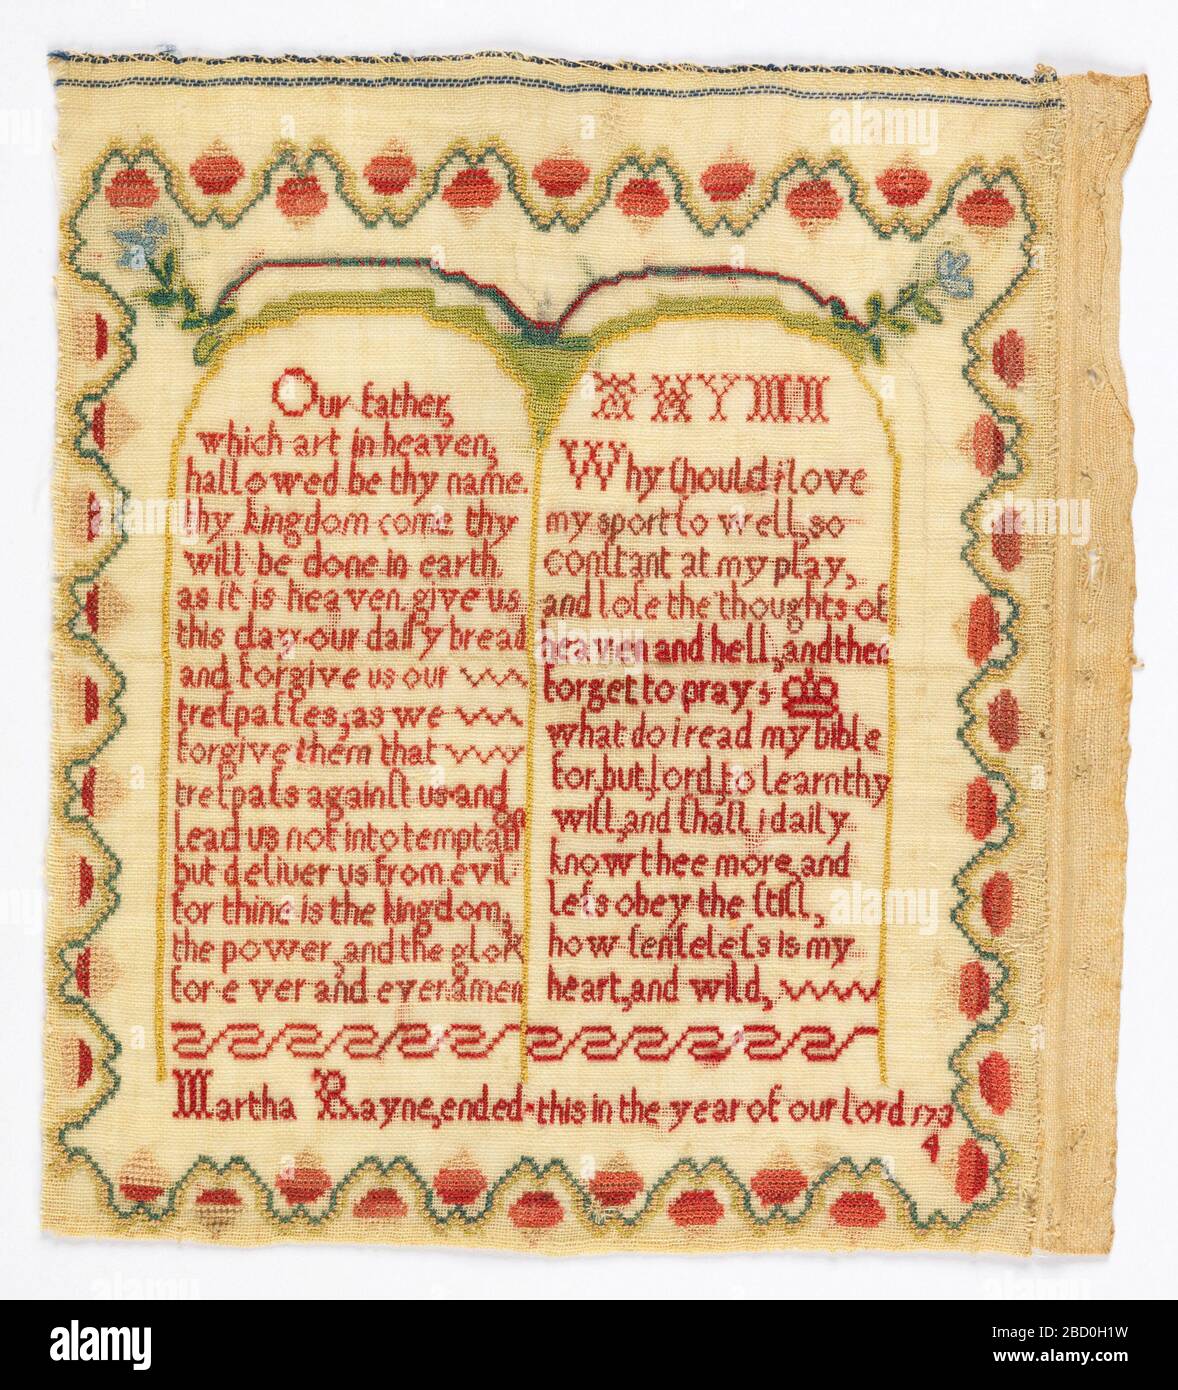 Our father,
which art in heaven,
hallowed be thy name.
thy kingdom come thy
will be done in earth,
as it is heaven. give us
this day our daily bread
and forgive us our
treſpaſſes, as we
forgive them that
treſpaſs againſt us and
lead us not into temptation
but deliver us from evil
for thine is the kingdom,
the power, and the glory
for e ver and ever. amen
A HYMN
Why ſhould i love
my sport ſo well, so
conſtant at my play,
and loſe the thoughts of
heaven and hell, and then
forget to pray
what do i read my bible
for, but, lord, to learn thy
will, and ſhall i daily
know thee more, and
leſs obey the ſtill,
how ſenſeleſs is my
heart, and wild,
Martha Rayne, ended this in the year of our lord 173
4
alamy
Image ID: 2BD0H1W
www.alamy.com